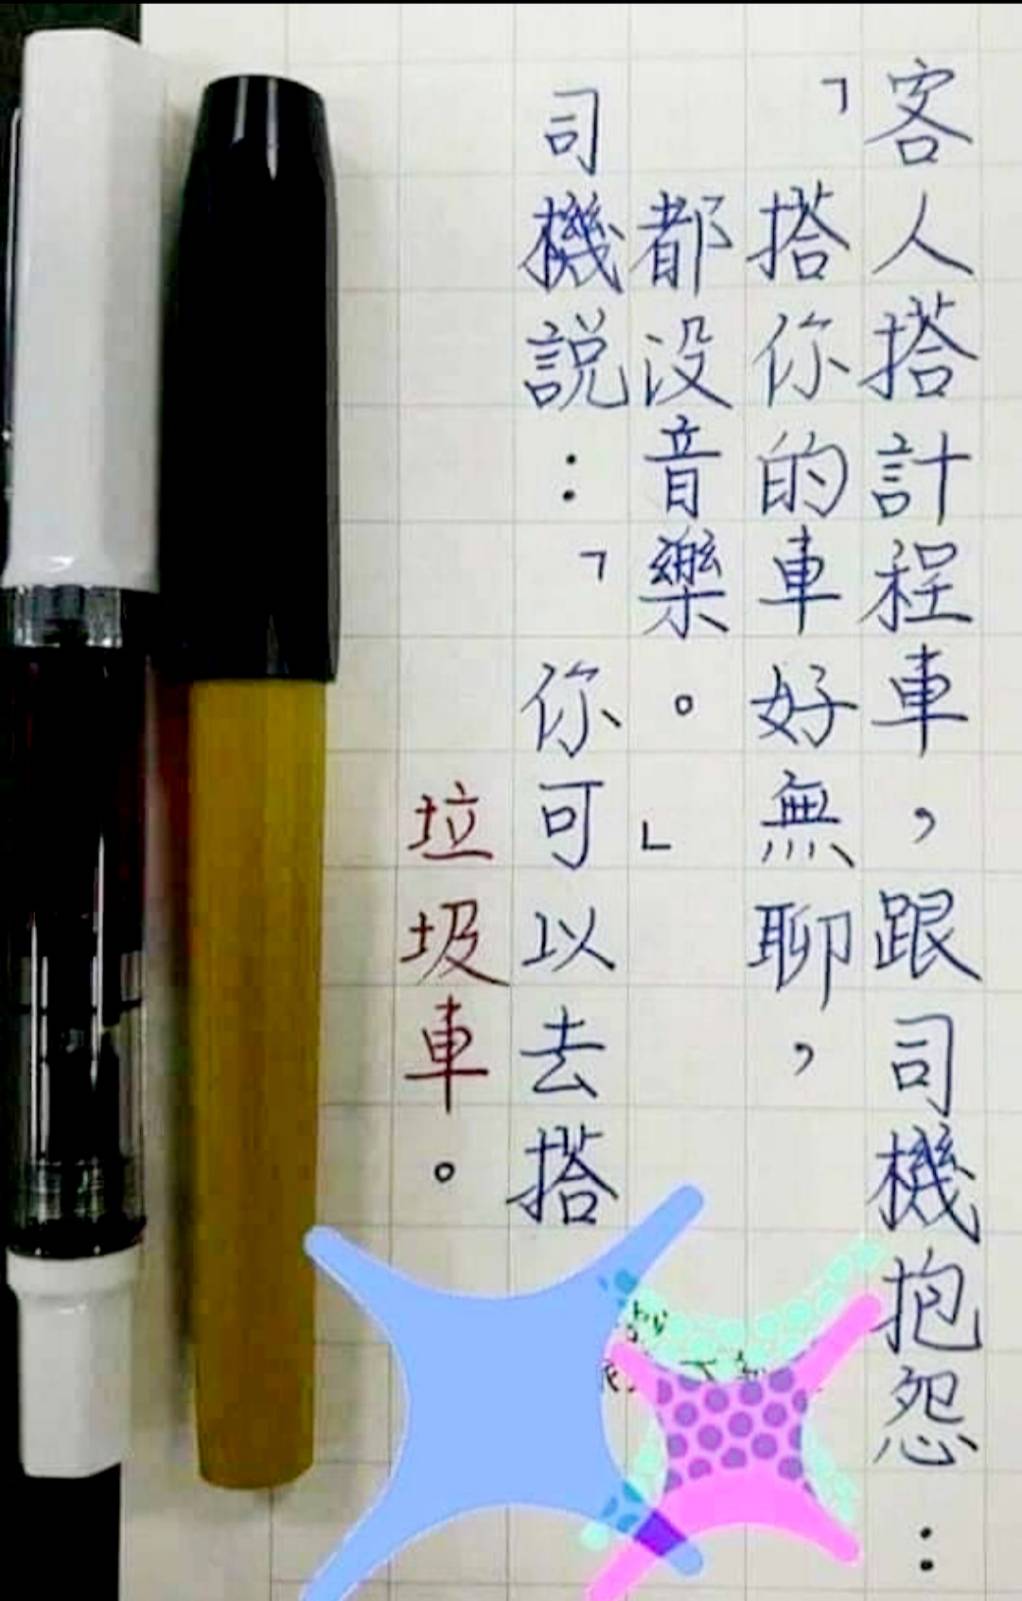 客人搭計程車，跟司機抱怨：
「搭你的車好無聊，
都没音樂。」
司機説：「你可以去搭
垃圾車。